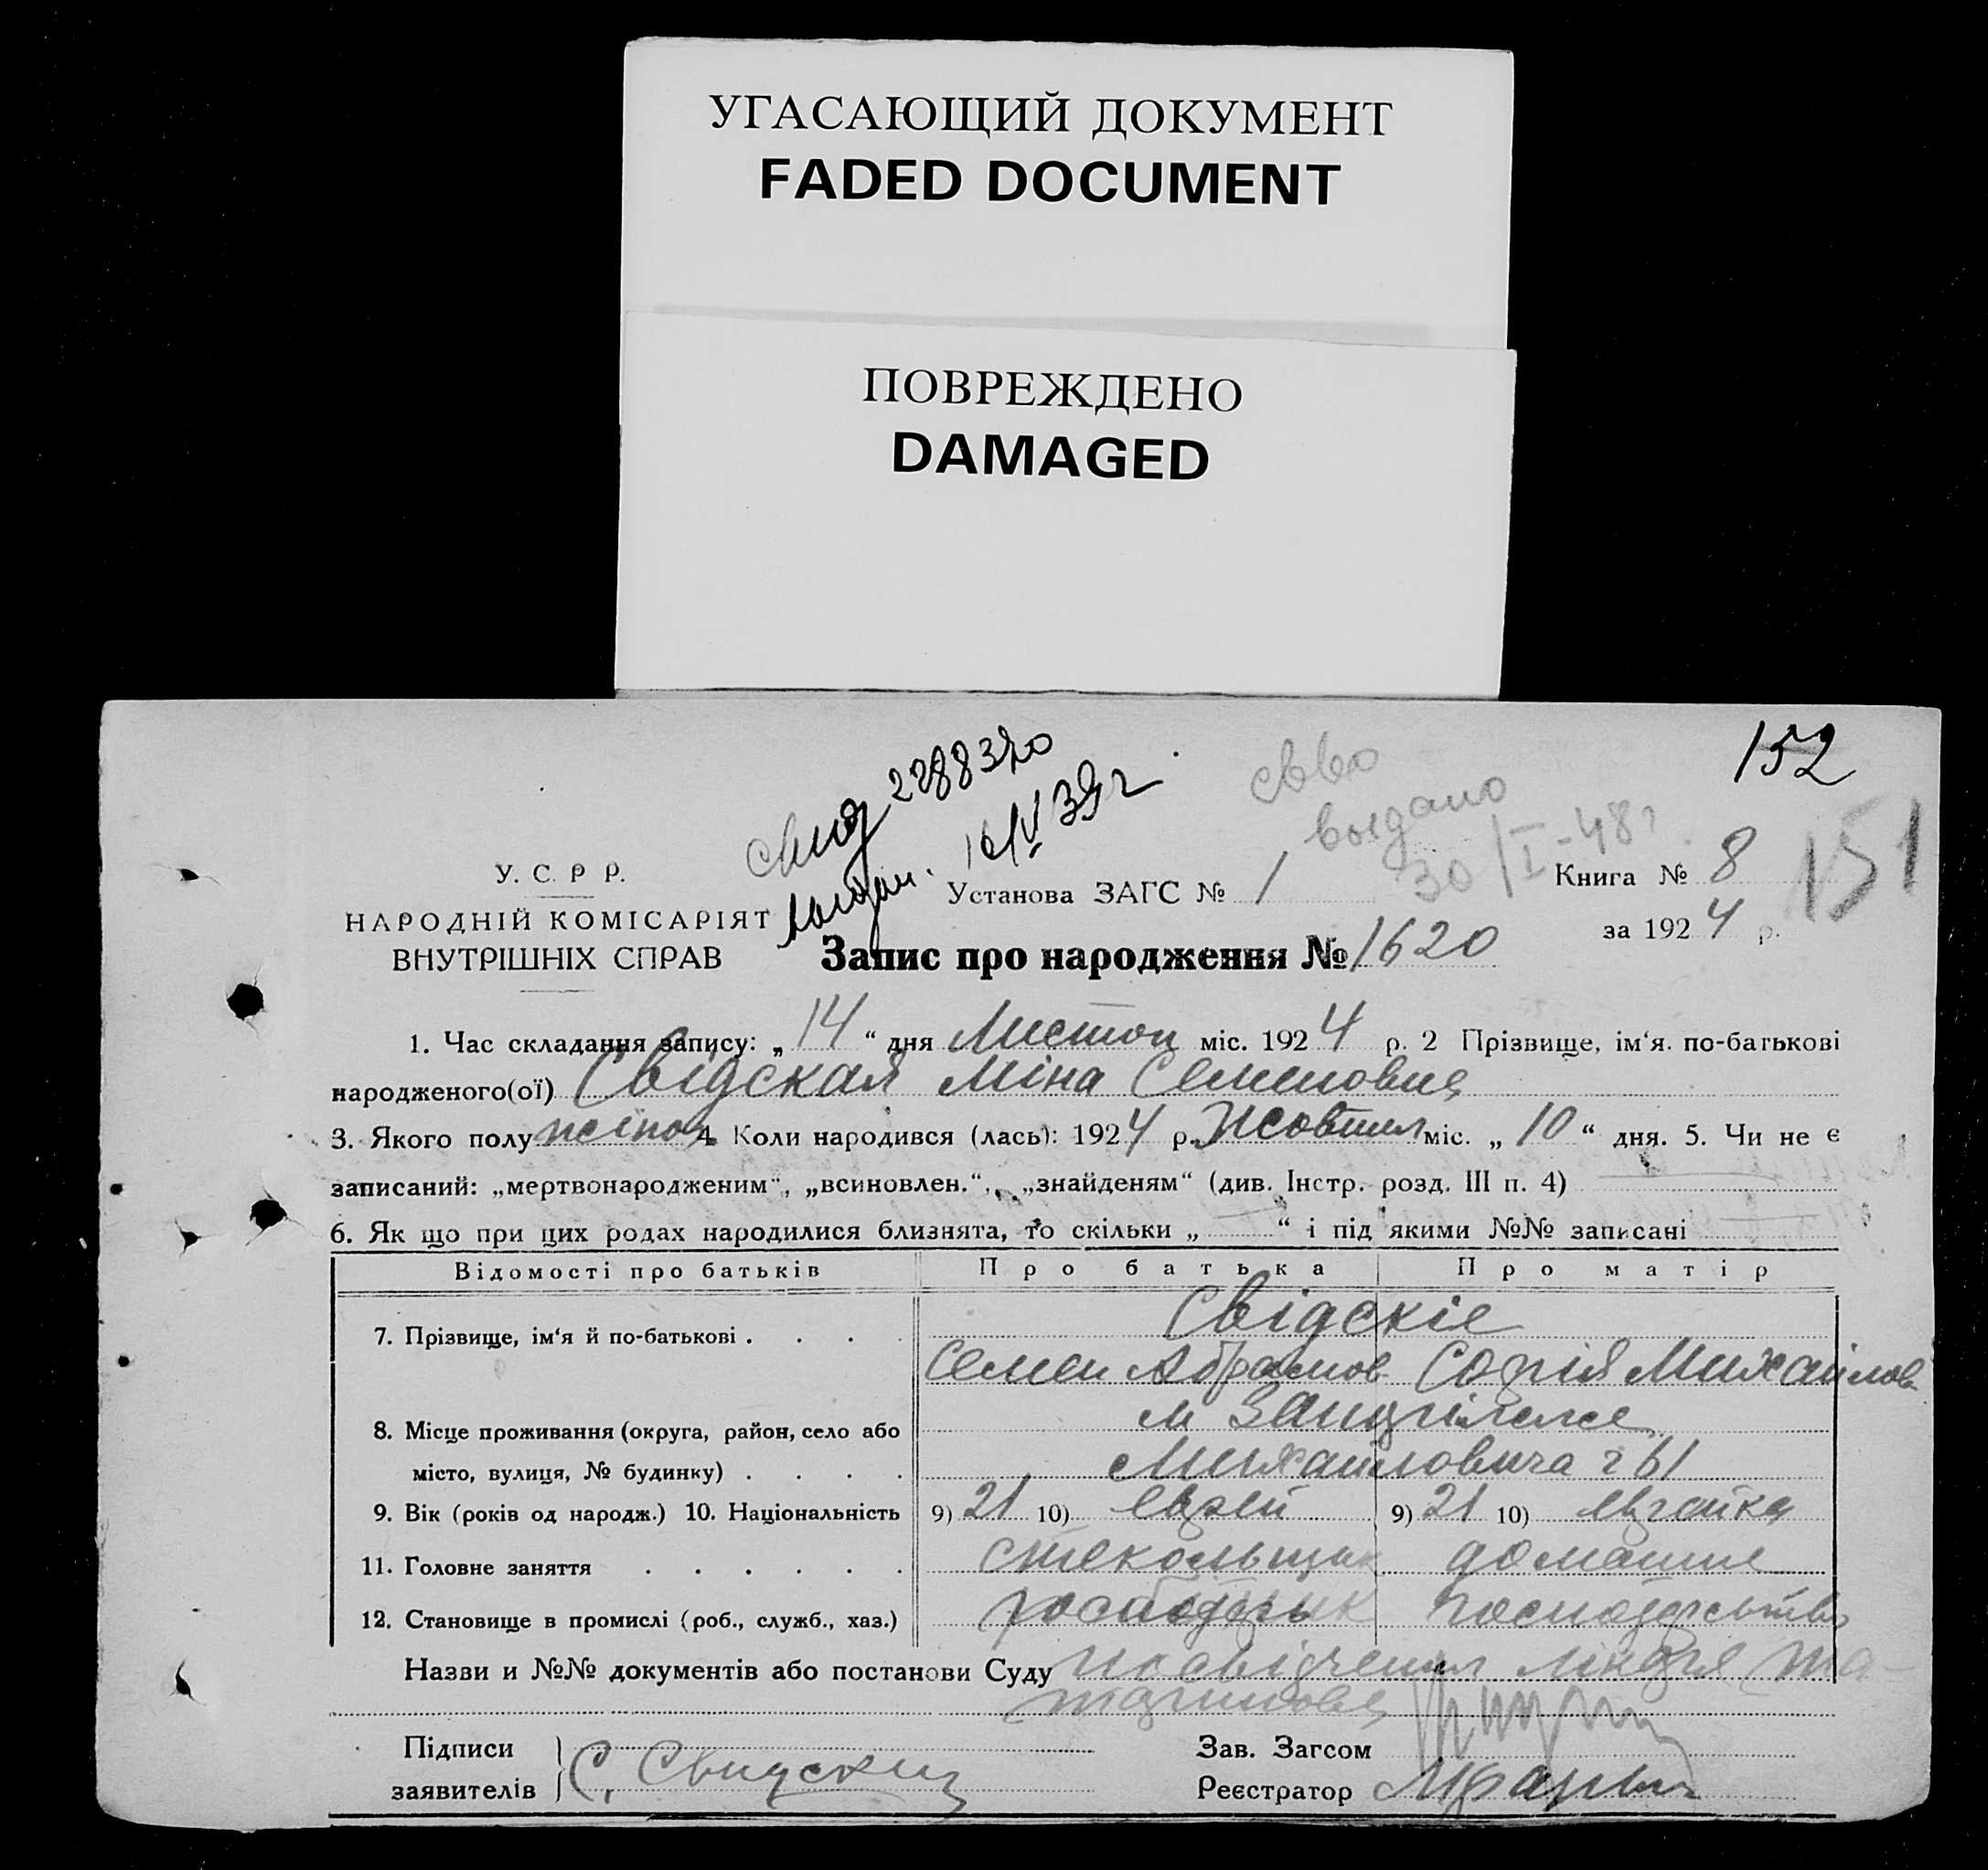 УГАСАЮЩИЙ ДОКУМЕНТ
FADED DOCUMENT
ПОВРЕЖДЕНО
DAMAGED
152
151
2288320
16/V 39 г
выдано
30/I-48 г
У. С. Р Р.
НАРОДНІЙ КОМІСАРІЯТ
ВНУТРІШНІХ СПРАВ
Установа ЗАГС № 1
Книга № 8
за 1924 р.
Запис про народження № 1620
1. Час складання запису: „ 14 “ дня Листоп міс. 1924 р. 2 Прізвище, ім‘я. по-батькові
народженого(ої) Свідская Міна Семеновна
3. Якого полу жіноч 4. Коли народився (лась): 1924 р. Жовтня міс. „ 10 “ дня. 5. Чи не є
записаний: „мертвонародженим“, „всиновлен.“, „знайденям“ (див. Інстр. розд. III п. 4)
6. Як що при цих родах народилися близнята, то скільки „ “ і під якими №№ записані
Відомості про батьків Про батька Про матір
7. Прізвище, ім‘я й по-батькові . . . . Свідскіе
Семен Абрамов. Софія Михайлов
8. Місце проживання (округа, район, село або
місто, вулиця, № будинку) . . . . 61
9. Вік (років од народж.) 10. Національність 9) 21 10) еврей 9) 21 10)
11. Головне заняття . . . . . . стекольщик домашне
12. Становище в промислі (роб., служб., хаз.) господарство
Назви и №№ документів або постанови Суду посвідчення
Підписи
заявителів С. Свидский
Зав. Загсом
Реєстратор